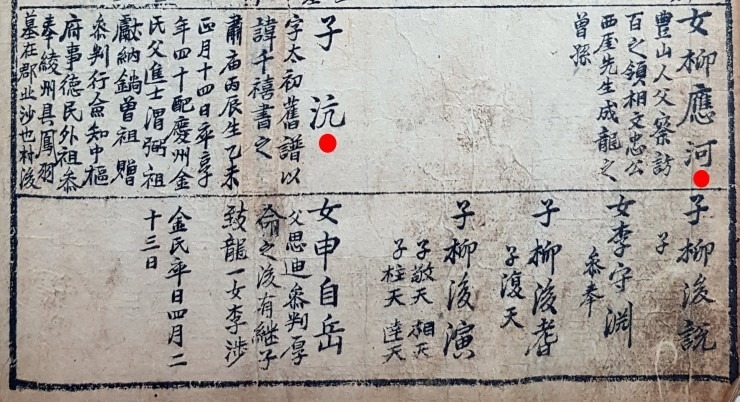 女柳應河
豊山人父察訪
百之領相文忠公
西厓先生成龍之
曾孫
子沆
字太初舊譜以
諱千禧書之
肅庙丙辰生乙未
正月十四日卒享
年四十配慶州金
氏父進士渭弼祖
獻納曾祖贈
叅判行僉知中樞
府事德民外祖叅
奉綾州具鳳羽
墓在郡北沙也村後
子柳後說
子
女李守淵
叅奉
子柳後耆
子復天
子柳後演
子敬天 相天
子柱天 逵天
女申自岳
父思迪叅判厚
命之後有継子
致龍一女李涉
金氏卒日四月二
十三日